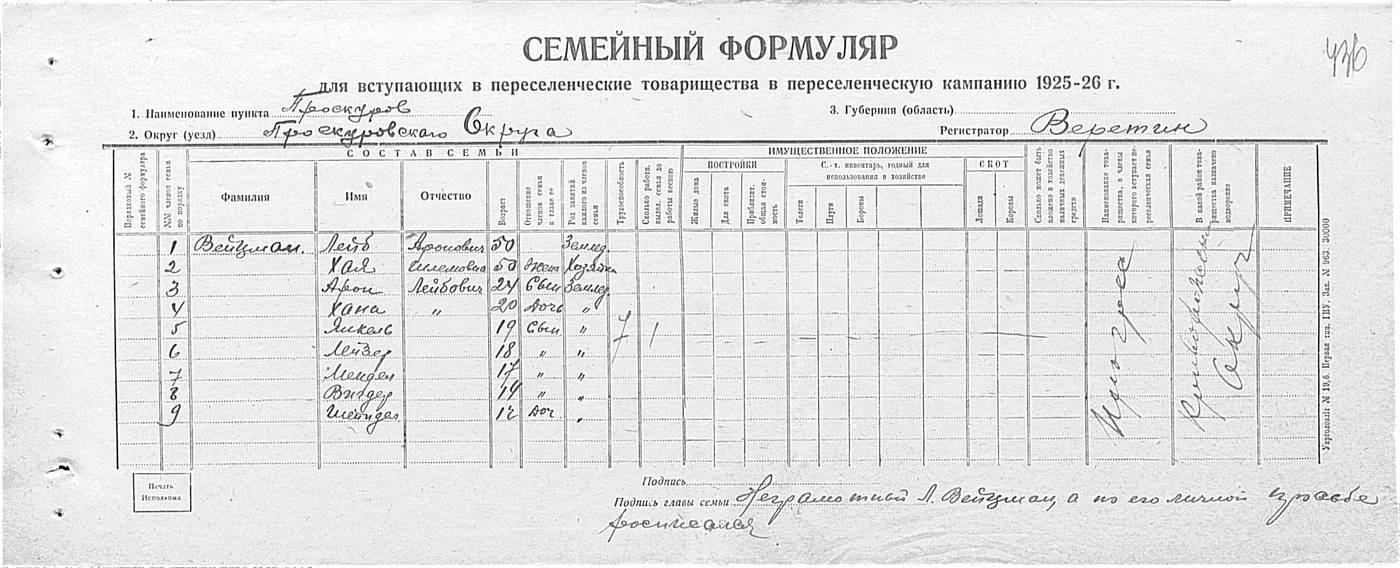 СЕМЕЙНЫЙ ФОРМУЛЯР
436
для вступающих в переселенческие товарищества в переселенческую кампанию 1925-26 г.
1. Наименование пункта Проскуров
3. Губерния (область)
2. Округ (уезд) Проскуровскаго Округа
Регистратор Веретин
Порядковый № семейного формуляра
№№ членов семьи по порядку
СОСТАВ СЕМЬИ
Фамилия
Имя
Отчество
Возраст
Отношение членов семьи к главе ее
Род занятий каждого из членов семьи
Трудоспособность
Сколько работн. высыл. семья до работы весною
ИМУЩЕСТВЕННОЕ ПОЛОЖЕНИЕ
ПОСТРОЙКИ
Жилые дома
Для скота
Приблизит. общая стоимость
С.-х. инвентарь, годный для использования в хозяйстве
Телеги
Плуги
Бороны
СКОТ
Лошади
Коровы
Сколько может быть вложено в хозяйство наличных денежных средств
Наименование товарищества, в члены которого вступает переселенческая семья
В какой район товарищества назначено водворение
ПРИМЕЧАНИЕ
1 Вейцман. Лейб Аронович 50 Землед.
2 Хая Шлемовна 50 Жена Хозяйка
3 Арон Лейбович 24 Сын Землед.
4 Хана " 20 Дочь "
5 Янкель 19 Сын " 7 1
6 Лейзер 18 " "
7 Мендел 17 " "
8 Вигдер 14 " "
9 Шейндел 12 Доч. "
Прогресс
Криворожский Округ
Укрголовліт № 19,6. Первая тип. ГПУ, Зак. № 963. 30000
Печать Исполкома
Подпись
Подпись главы семьи Неграмотный Л. Вейцман, а по его личной просьбе
росписался